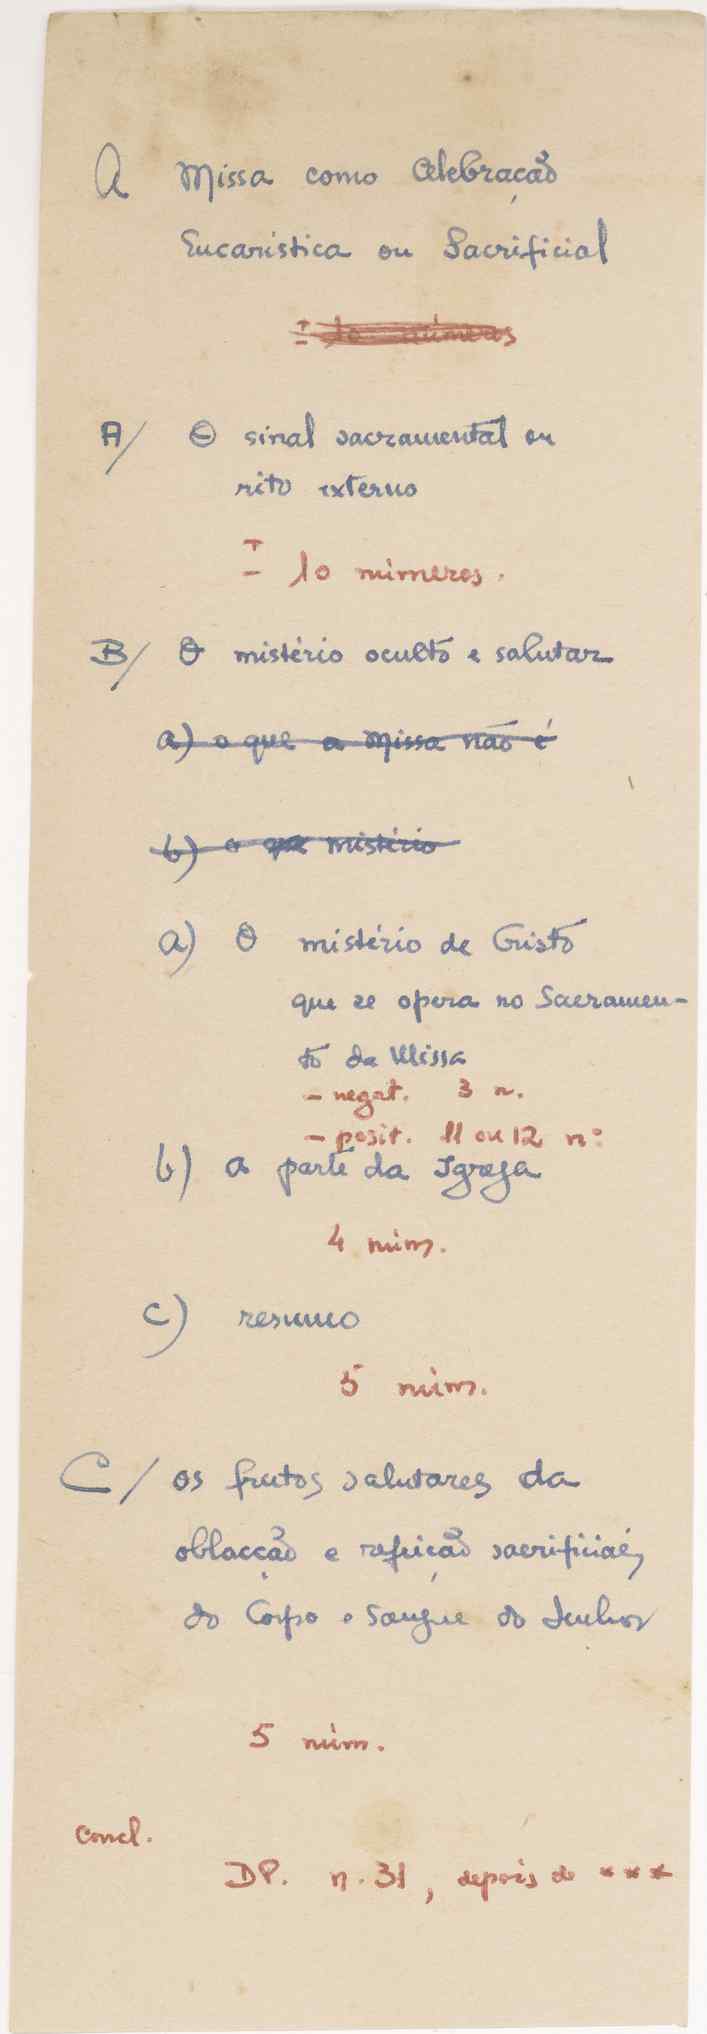 A Missa como Celebração
Eucarística ou Sacrificial
I 10 números
A/ O sinal sacramental ou
rito externo
I 10 números.
B/ O mistério oculto e salutar
a) o que a Missa não é
b) o que mistério
a) O mistério de Cristo
que se opera no Sacramen-
to da Missa
- negat. 3 n.
- posit. 11 ou 12 nº
b) a parte da Igreja
4 núm.
c) resumo
5 núm.
C/ os frutos salutares da
oblacção e refeição sacrificiais,
do Corpo e Sangue do Senhor
5 núm.
Concl.
DP. n. 31, depois de ***